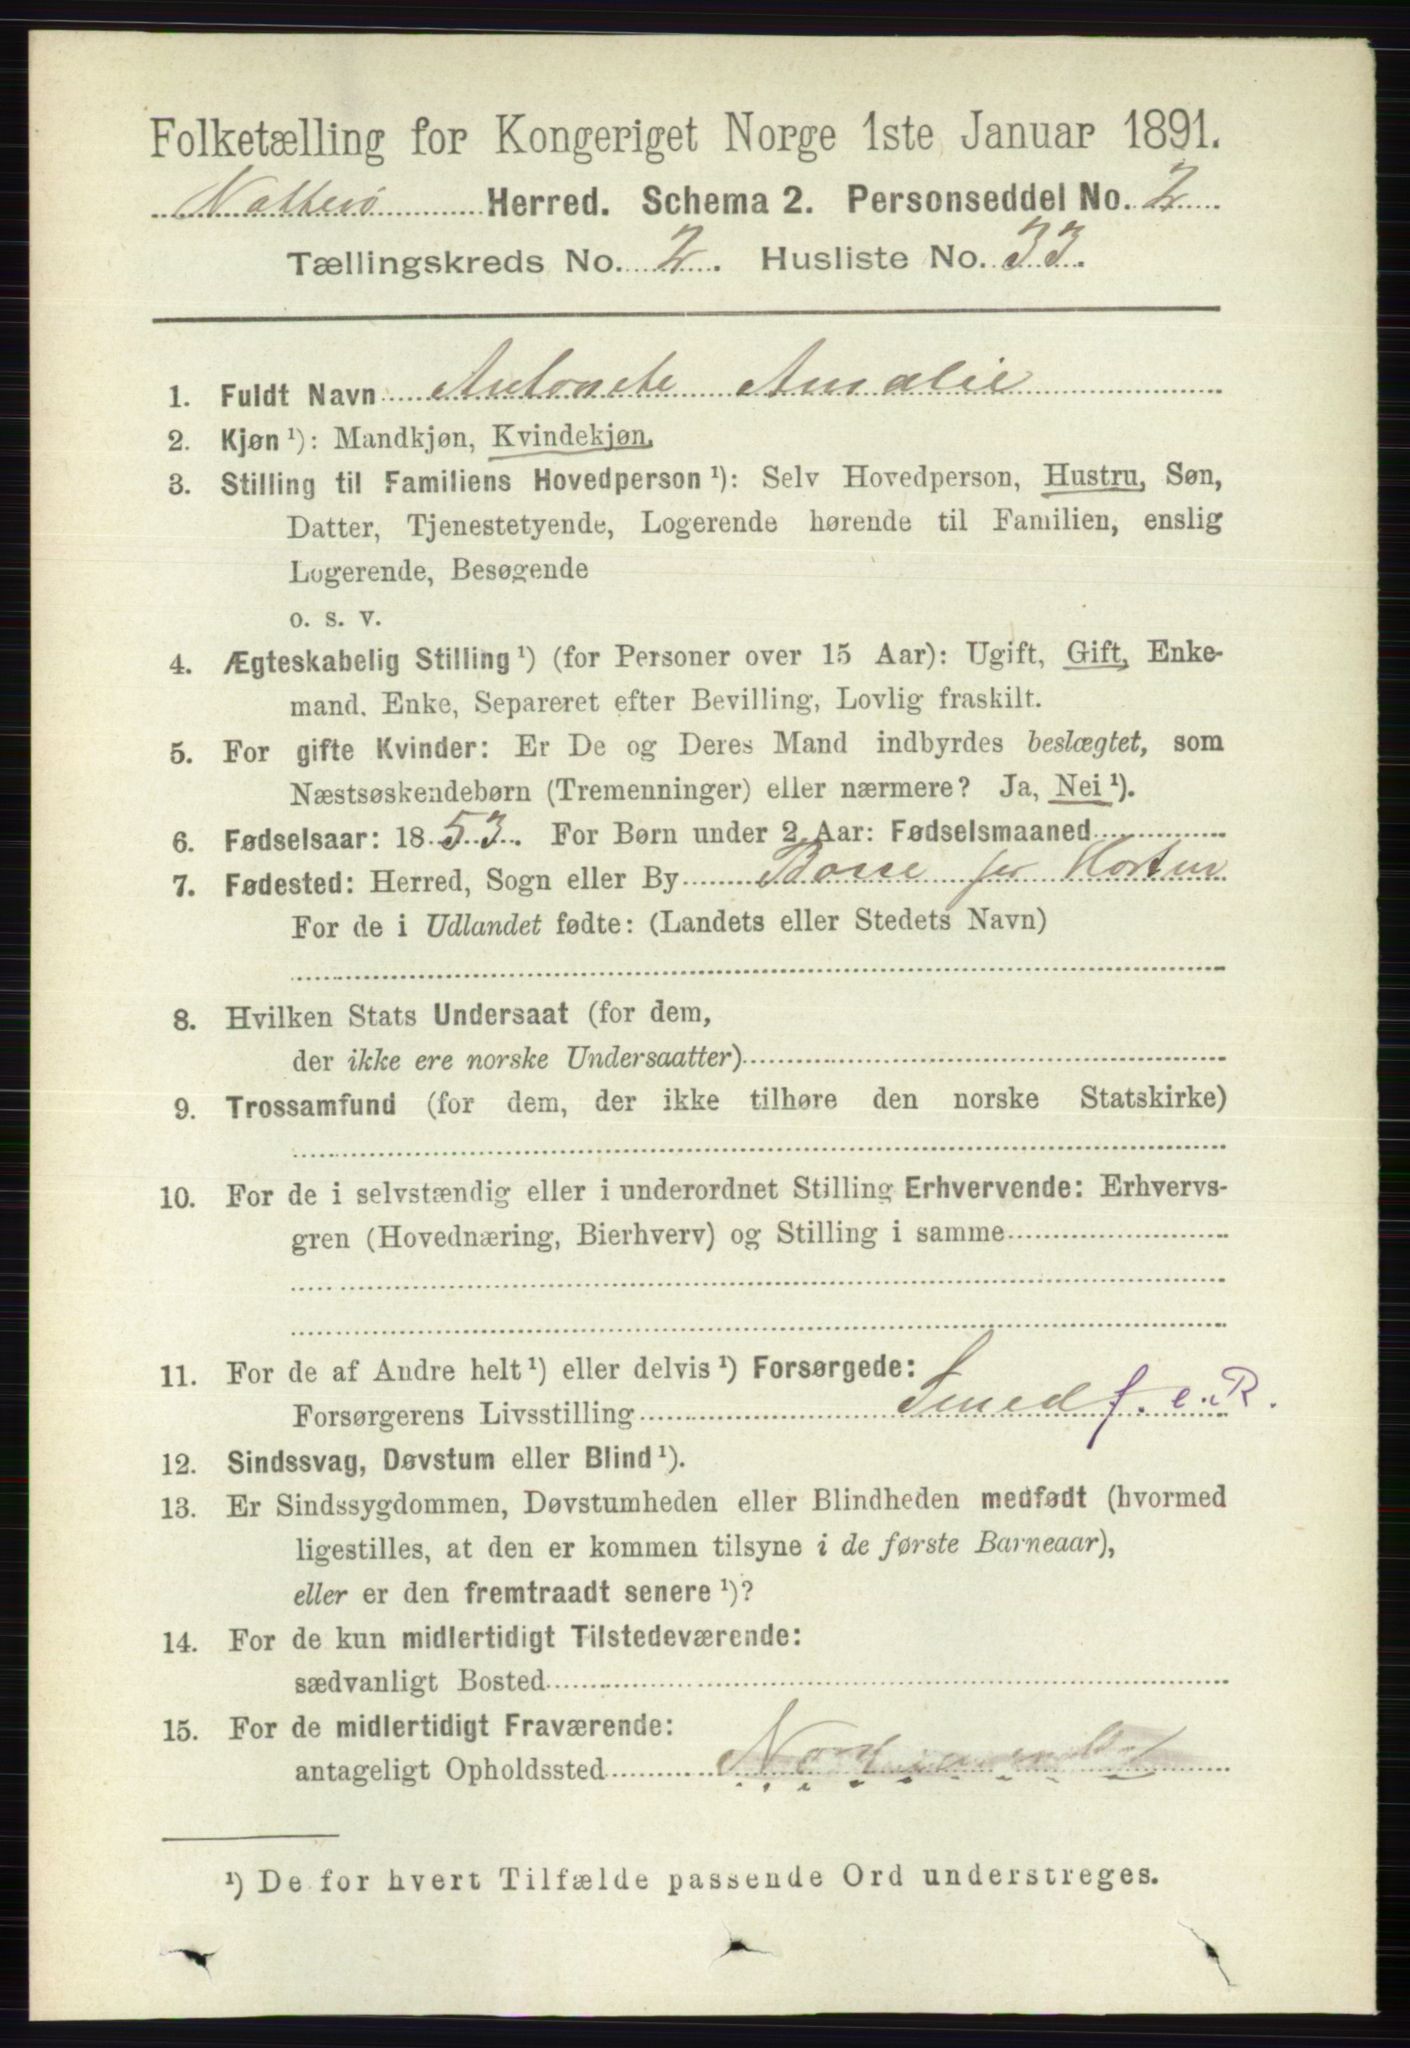 Folketælling for Kongeriget Norge 1ste Januar 1891.
Nøtterø Herred. Schema 2. Personseddel No. 2
Tællingskreds No. 2. Husliste No. 33.
1. Fuldt Navn Antonete Amalie
2. Kjøn ¹): Mandkjøn, Kvindekjøn.
3. Stilling til Familiens Hovedperson ¹): Selv Hovedperson, Hustru, Søn,
Datter, Tjenestetyende, Logerende hørende til Familien, enslig
Logerende, Besøgende
o. s. v.
4. Ægteskabelig Stilling ¹) (for Personer over 15 Aar): Ugift, Gift, Enke-
mand, Enke, Separeret efter Bevilling, Lovlig fraskilt.
5. For gifte Kvinder: Er De og Deres Mand indbyrdes beslægtet, som
Næstsøskendebørn (Tremenninger) eller nærmere? Ja, Nei ¹).
6. Fødselsaar: 1853. For Børn under 2 Aar: Fødselsmaaned
7. Fødested: Herred, Sogn eller By Borre pr Horten
For de i Udlandet fødte: (Landets eller Stedets Navn)
8. Hvilken Stats Undersaat (for dem,
der ikke ere norske Undersaatter)
9. Trossamfund (for dem, der ikke tilhøre den norske Statskirke)
10. For de i selvstændig eller i underordnet Stilling Erhvervende: Erhvervs-
gren (Hovednæring, Bierhverv) og Stilling i samme
11. For de af Andre helt ¹) eller delvis ¹) Forsørgede:
Forsørgerens Livsstilling Smed f. e. R.
12. Sindssvag, Døvstum eller Blind ¹).
13. Er Sindssygdommen, Døvstumheden eller Blindheden medfødt (hvormed
ligestilles, at den er kommen tilsyne i de første Barneaar),
eller er den fremtraadt senere ¹)?
14. For de kun midlertidigt Tilstedeværende:
sædvanligt Bosted
15. For de midlertidigt Fraværende:
antageligt Opholdssted
¹) De for hvert Tilfælde passende Ord understreges.